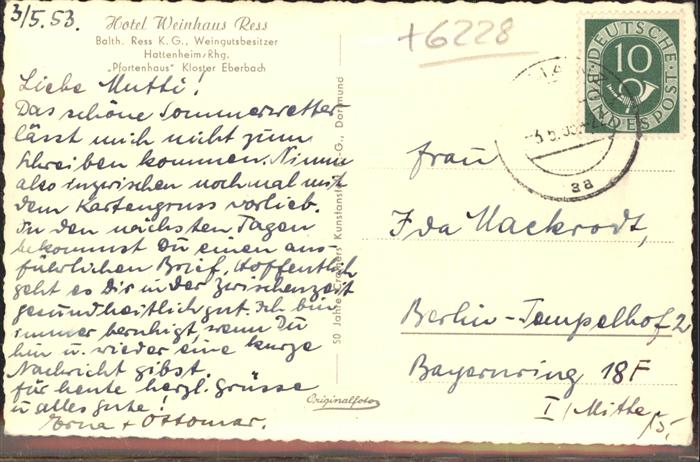 3/5.53.
Hotel Weinhaus Ress
Balth. Ress K. G., Weingutsbesitzer
Hattenheim/Rhg.
„Pfortenhaus" Kloster Eberbach
+6228
DEUTSCHE BUNDESPOST
10
aa
Liebe Mutti!
Das schöne Sommerwetter
lässt mich nicht zum
Schreiben kommen. Nimm
also inzwischen nochmal mit
dem Kartengruss vorlieb.
In den nächsten Tagen
bekommst Du einen aus-
führlichen Brief. Hoffentlich
geht es Dir in der Zwischenzeit
gesundheitlich gut. Ich bin
immer beruhigt wenn Du
hin u. wieder eine kurze
Nachricht gibst.
für heute herzl. Grüsse
u alles gute!
Erna + Ottomar.
50 Jahre Kunstanstalt G., Dortmund
Originalfoto
Frau
Ida Mackrodt,
Berlin-Tempelhof 2
Bayernring 18F
I/Mitte